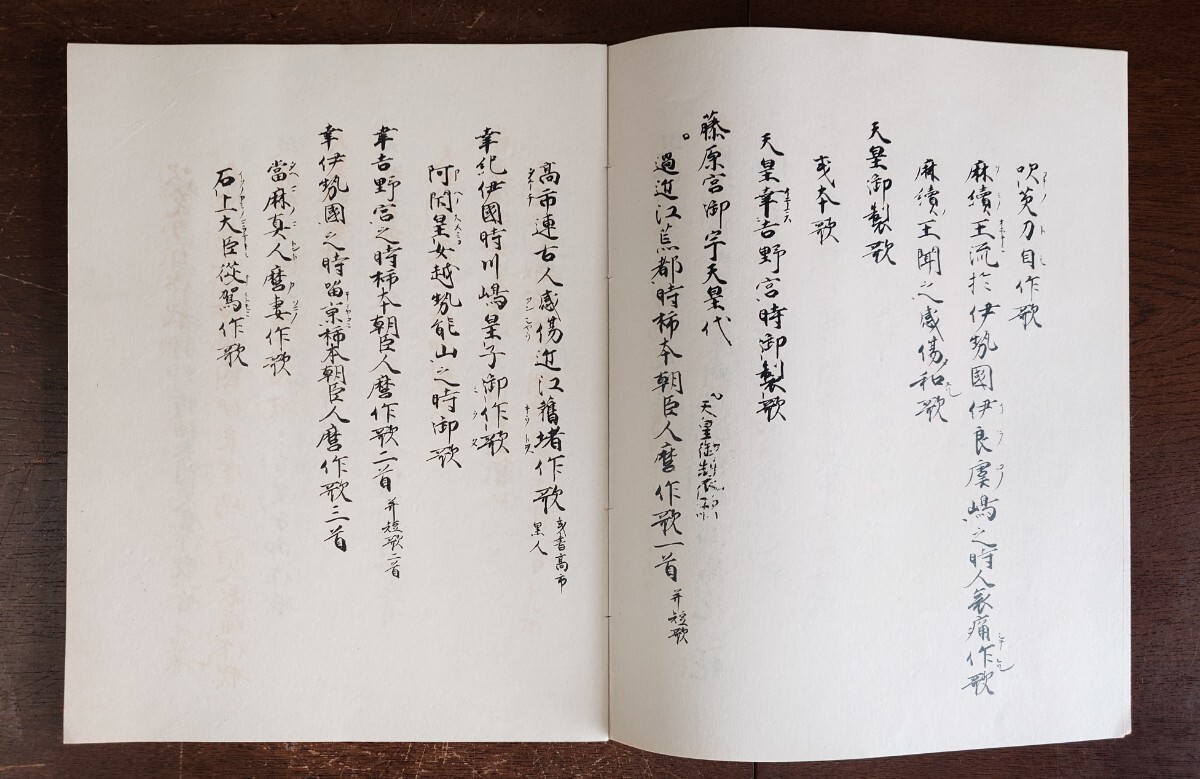 吹芡刀自作歌
麻續王流於伊勢國伊良虞嶋之時人哀痛作歌
麻續王聞之感傷和歌
天皇御製歌
或本歌
天皇幸吉野宮時御製歌
藤原宮御宇天皇代
天皇御製歌
過近江荒都時柿本朝臣人麿作歌一首 并短歌
高市連古人感傷近江舊堵作歌 或書高市黒人
幸紀伊國時川嶋皇子御作歌
阿閇皇女越勢能山之時御歌
幸吉野宮之時柿本朝臣人麿作歌二首 并短歌二首
幸伊勢國之時留京柿本朝臣人麿作歌三首
當麻真人麿妻作歌
石上大臣從駕作歌